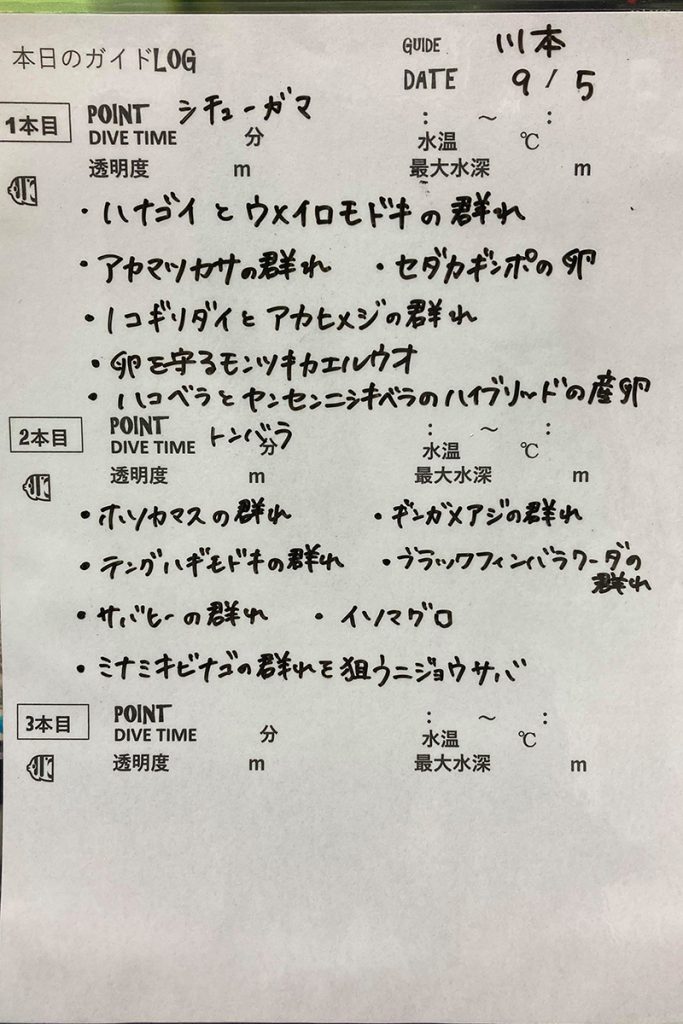 本日のガイドLOG
GUIDE 川本
DATE 9/5
1本目 POINT シチューガマ : ～ :
DIVE TIME 分 水温 ℃
透明度 m 最大水深 m
・ハナゴイとウメイロモドキの群れ
・アカマツカサの群れ ・セダカギンポの卵
・ノコギリダイとアカヒメジの群れ
・卵を守るモンツキカエルウオ
・ハコベラとヤンセンニシキベラのハイブリッドの産卵
2本目 POINT トンバラ : ～ :
DIVE TIME 分 水温 ℃
透明度 m 最大水深 m
・ホソカマスの群れ ・ギンガメアジの群れ
・テングハギモドキの群れ ・ブラックフィンバラクーダの
群れ
・サバヒーの群れ ・イソマグロ
・ミナミキビナゴの群れを狙うニジョウサバ
3本目 POINT : ～ :
DIVE TIME 分 水温 ℃
透明度 m 最大水深 m